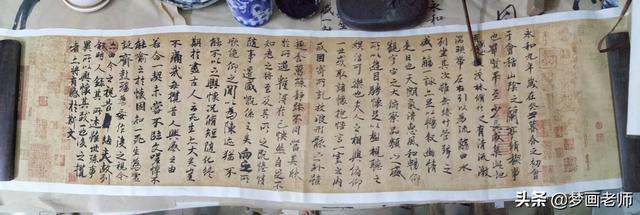 永和九年歲在癸丑暮春之初會
于會稽山陰之蘭亭脩禊事
也群賢畢至少長咸集此地
茂林脩竹又有清流激
湍暎帶左右引以為流觴曲水
列坐其次雖無絲竹管弦之
盛一觴一詠亦足以暢敘幽情
是日也天朗氣清惠風和暢仰
觀宇宙之大俯察品類之盛
所以遊目騁懷足以極視聽之
娛信可樂也夫人之相與俯仰
一世或取諸懷抱悟言一室之內
或因寄所託放浪形骸之外雖
趣舍萬殊靜躁不同當其欣
於所遇蹔得於己快然自足不
知老之將至及其所之既惓情
隨事遷感慨係之矣向之所
欣俛仰之間以為陳迹猶不
能不以之興懷況脩短隨化終
期於盡古人云死生亦大矣豈
不痛哉每攬昔人興感之由
若合一契未嘗不臨文嗟悼不
能喻之於懷固知一死生為虛
誕齊彭殤為妄作後之視今
亦由今之視昔悲夫故列
敘時人錄其所述雖世殊事
異所以興懷其致一也後之攬
者亦將有感於斯文
头条 @梦画老师